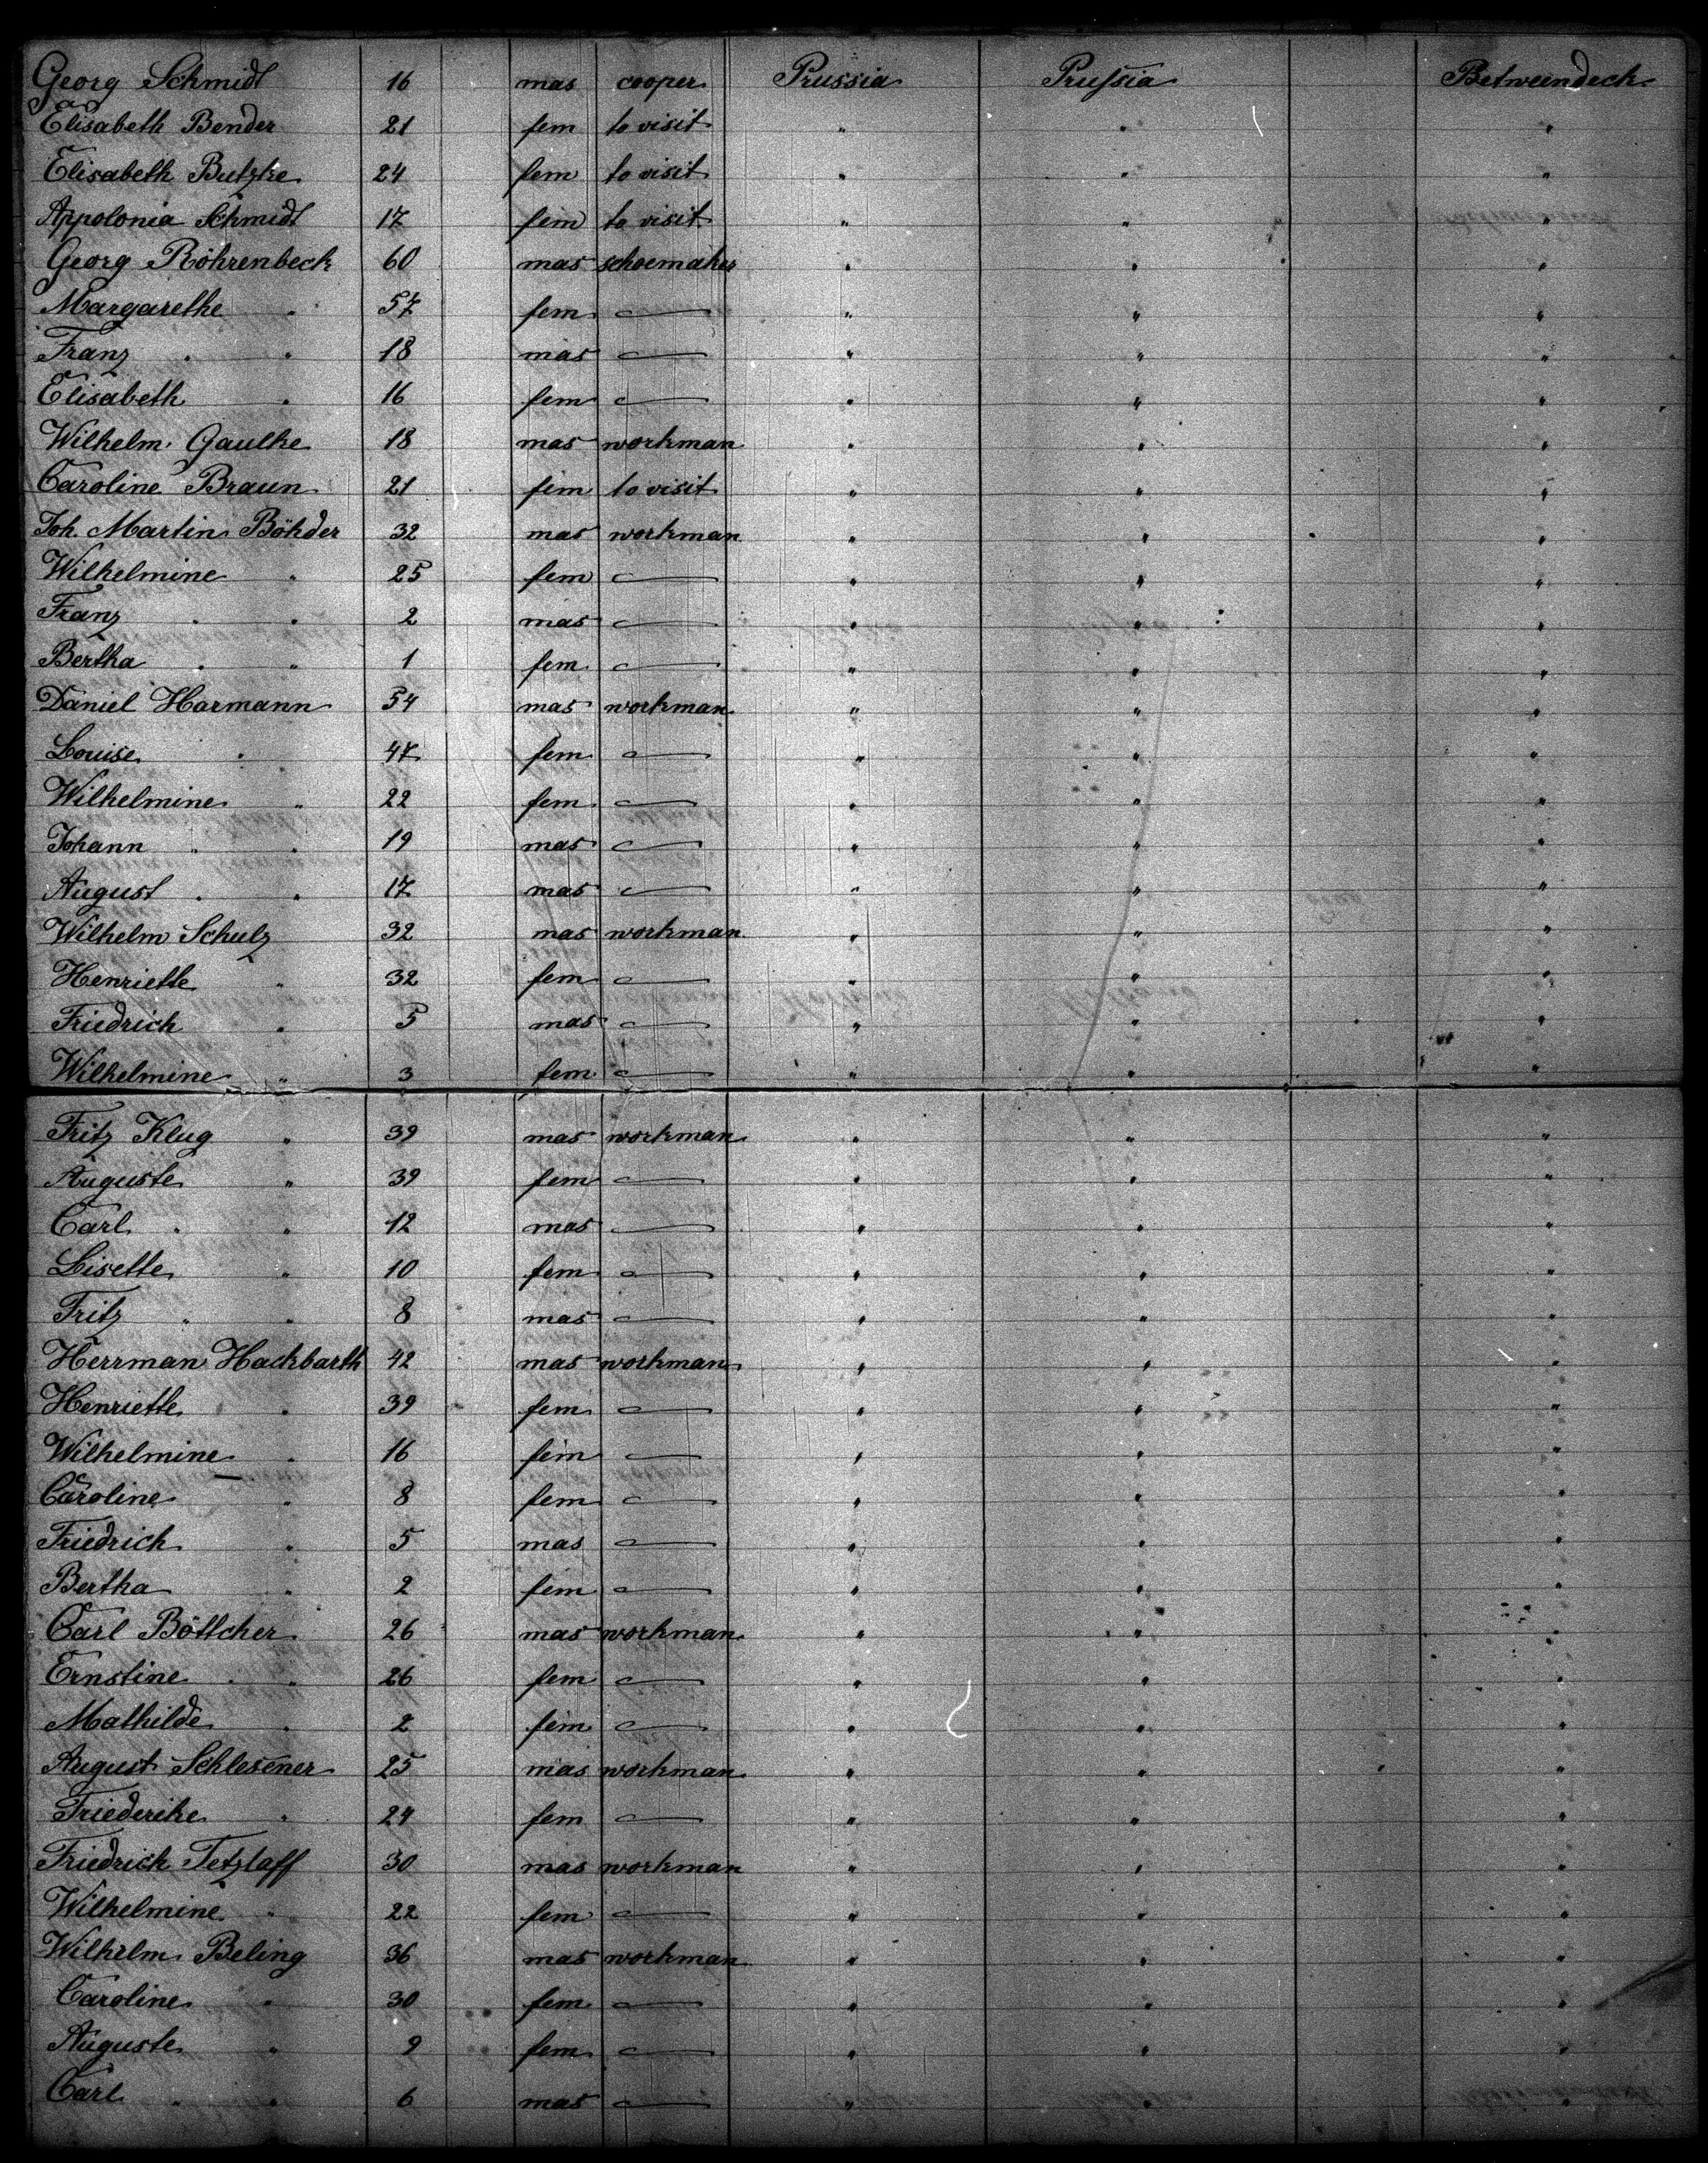 Georg Schmidt 16 mas cooper Prussia Prussia Betweendeck
Elisabeth Bender 21 fem to visit " " "
Elisabeth Butzke 24 fem to visit " " "
Appolonia Schmidt 17 fem to visit " " "
Georg Röhrenbeck 60 mas schoemaker " " "
Margarethe " 57 fem — " " "
Franz " " 18 mas — " " "
Elisabeth " 16 fem — " " "
Wilhelm Gaulke 18 mas workman " " "
Caroline Braun 21 fem to visit " " "
Joh. Martin Böhder 32 mas workman " " "
Wilhelmine " 25 fem — " " "
Franz " " 2 mas — " " "
Bertha " " 1 fem — " " "
Daniel Harmann 54 mas workman " " "
Louise " 47 fem — " " "
Wilhelmine " 22 fem — " " "
Johann " " 19 mas — " " "
August " " 17 mas — " " "
Wilhelm Schulz 32 mas workman " " "
Henriette " 32 fem — " " "
Friedrich " 5 mas — " " "
Wilhelmine " 3 fem — " " "
Fritz Klug " 39 mas workman " " "
Auguste " 39 fem — " " "
Carl " " 12 mas — " " "
Lisette " 10 fem — " " "
Fritz " " 8 mas — " " "
Herrman Hackbarth 42 mas workman " " "
Henriette " 39 fem — " " "
Wilhelmine " 16 fem — " " "
Caroline " 8 fem — " " "
Friedrich " 5 mas — " " "
Bertha " 2 fem — " " "
Carl Böttcher 26 mas workman " " "
Ernstine " " 26 fem — " " "
Mathilde " 2 fem — " " "
August Schlesener 25 mas workman " " "
Friederike " 24 fem — " " "
Friedrich Tetzlaff 30 mas workman " " "
Wilhelmine " 22 fem — " " "
Wilhelm Beling 36 mas workman " " "
Caroline " 30 fem — " " "
Auguste " 9 fem — " " "
Carl " " 6 mas — " " "